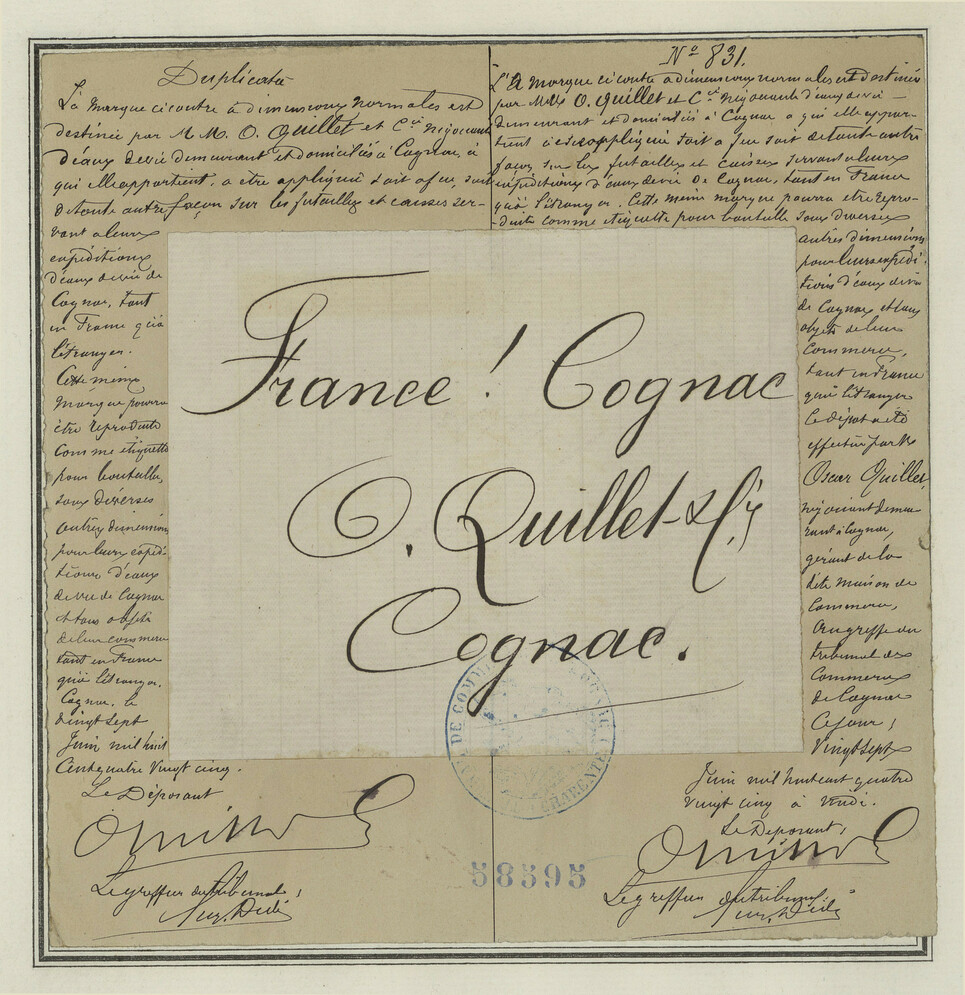 Duplicata
La marque ci contre à dimensions normales est
destinée par M.M. O. Quillet et Cie négociants
d'eaux de vie demeurant et domiciliés à Cognac, à
qui elle appartient, a être appliqué soit a feu, soit
de toute autre façon sur les futailles et caisses ser-
vant a leurs
expéditions
d'eaux de vie de
Cognac, tant
en France qu'à
l'étranger.
Cette même
marque pourra
être reproduite
comme étiquette
pour bouteille,
sous diverses
autres dimensions
pour leurs expédi-
tions d'eaux
de vie de Cognac
et tous objets
de leur commerce
tant en France
qu'à l'étranger.
Cognac, le
vingt sept
Juin mil huit
Cent quatre vingt cinq.
Le Déposant
Le greffier du tribunal,
No 831.
La marque ci contre a dimensions normales est destinée
par MM. O. Quillet et Cie négociants d'eaux de vie
demeurant et domiciliés à Cognac a qui elle appar-
tient à être appliqué soit a feu soit de toute autre
façon sur les futailles et caisses servant a leurs
expéditions d'eaux de vie de Cognac, tant en France
qu'à l'étranger. Cette même marque pourra etre repro-
-duite comme etiquette pour bouteille sous diverses
autres dimensions
pour leurs expédi-
tions d'eaux de vie
de Cognac et tous
objets de leur
Commerce,
tant en France
qu'à l'étranger
Le dépôt a été
effectué par Mr
Oscar Quillet,
négociant demeu-
rant à Cognac,
gérant de la
dite maison de
Commerce,
Au greffe du
tribunal de
Commerce
de Cognac
Ce jour,
Vingt sept
Juin mil huit cent quatre
vingt cinq à midi.
Le Déposant,
Le greffier du tribunal,
France! Cognac
O. Quillet & Cie
Cognac.
DE COMMERCE
CHARENTE
58595